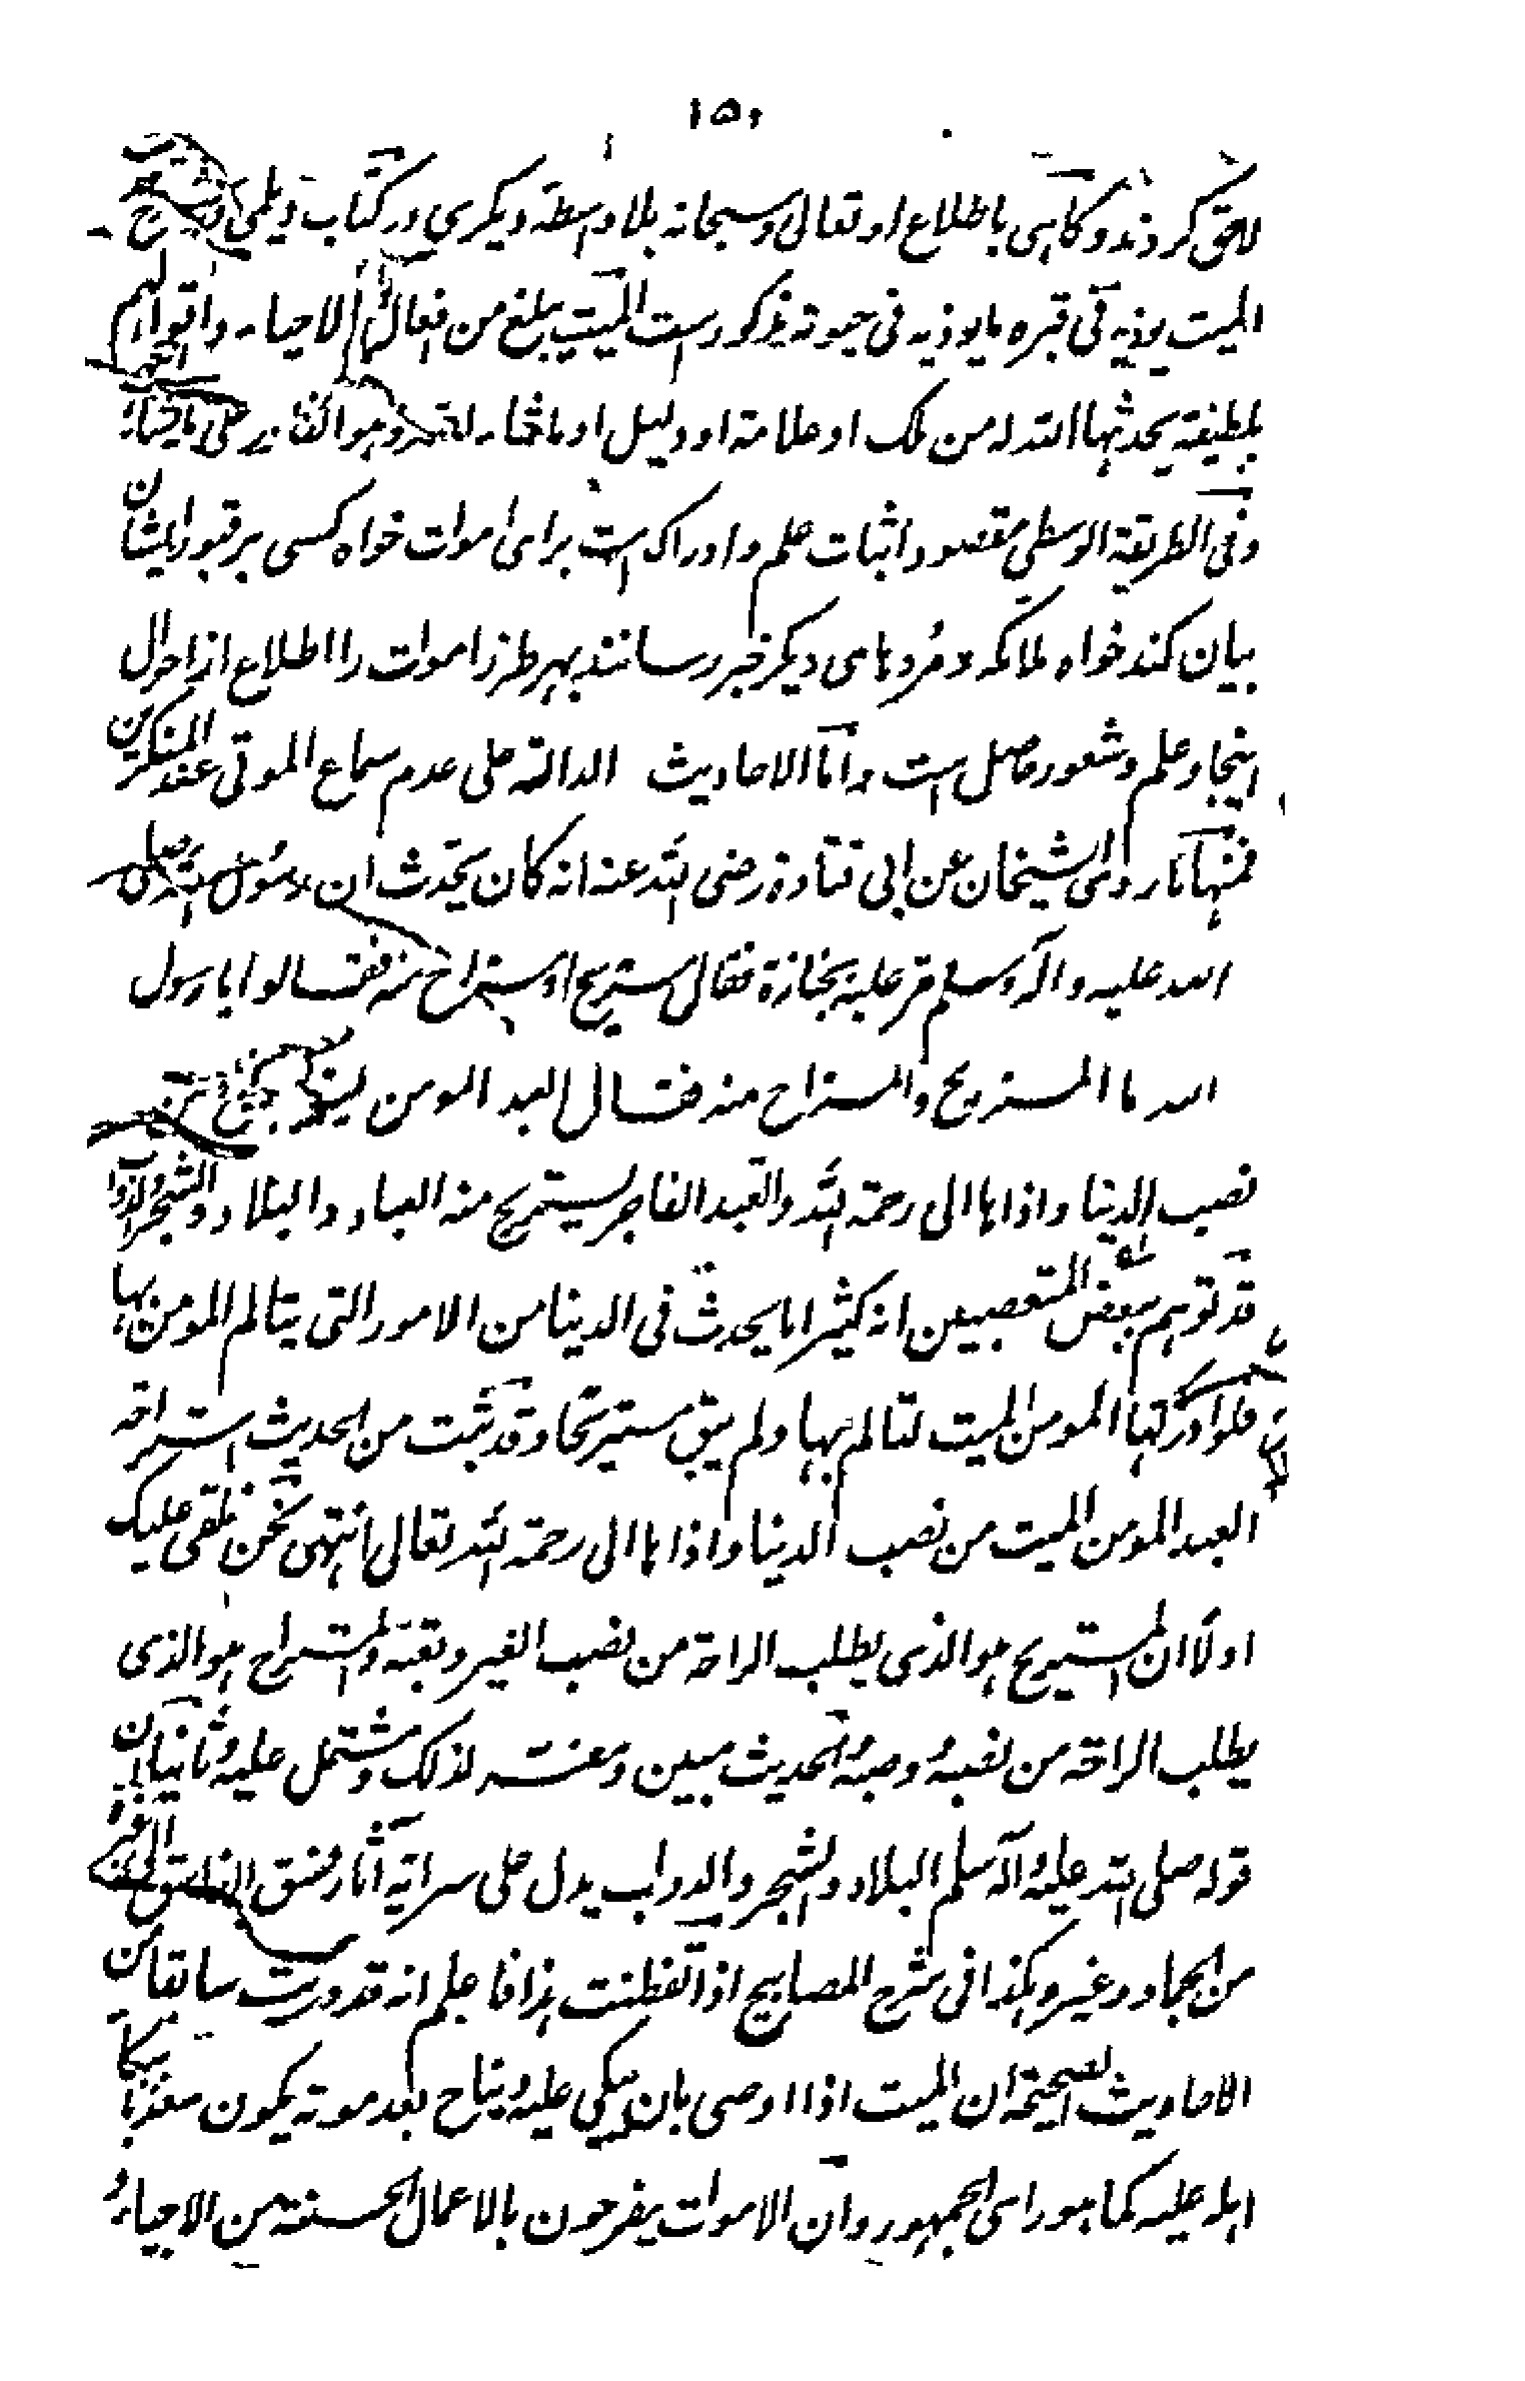 ۱۵۰
لاحق کردند و کاہی باطلاع او تعالی وسبحانہ بلا واسطۂ دیکری در کتاب دیلمی
المیت یوذیہ فی قبرہ ما یوذیہ فی حیوتہ مذکور است المیت یبلغ من افعال الاحیاء واقوالہم
بلطیفۃ یحدثہا اللہ لہ من ملک او علامۃ او دلیل او ماشاء اللہ وہو القادر علی مایشاء
وفی الطریقۃ الوسطی مقصود اثبات علم و ادراک است برای اموات خواہ کسی بر قبور ایشان
بیان کند خواہ ملائکہ و مُردہای دیکر خبر رسانند بہر طرز اموات را اطلاع از احوال
اینجا و علم و شعور حاصل است وامّا الاحادیث الدالۃ علی عدم سماع الموتی عند المنکرین
فمنہا ما روای الشیخان عن ابی قتادۃ رضی اللہ عنہ انہ کان یحدّث ان رسُول اللہ صلی
اللہ علیہ والہ وسلم مر علیہ بجنازۃ فقال مستریح او مستراح منہ فقالوا یا رسول
اللہ ما المستریح والمستراح منہ فقال العبد المومن یستریح من
نصب الدنیا واذاہا الی رحمۃ اللہ والعبد الفاجر یستریح منہ العباد والبلاد والشجر والدواب
قد توہم بعض المتعصبین انہ کثیرا ما یحدث فی الدنیا من الامور التی یتالم المومن بہا
فلو ادرکتہا المومن المیت لتالم بہا ولم یبق مستریحًا وقد ثبت من الحدیث استراحۃ
العبد المومن المیت من نصب الدنیا واذاہا الی رحمۃ اللہ تعالی انتہی نحن نلقی علیک
اولًا ان المستریح ہو الذی یطلب الراحۃ من نصب الغیر وتعبہ والمستراح ہو الذی
یطلب الراحۃ من نصبہ وصبہ الحدیث مبین ومعنتہ لذلک ومشتمل علیہ وثانیا ان
قولہ صلی اللہ علیہ والہ سلم البلاد والشجر والدواب یدل علی سرایۃ آثار فسق الفاسق
من الجماد وغیرہ ہکذا فی شرح المصابیح اذا تفطنت ہذا فاعلم انہ قد دریت سابقا من
الاحادیث الصحیحۃ ان المیت اذا اوصی بان یبکی علیہ ویناح بعد موتہ یکون معذبًا ببکاء
اہلہ علیہ کما ہو رای الجمہور وان الاموات یفرحون بالاعمال الحسنۃ من الاحیاء و